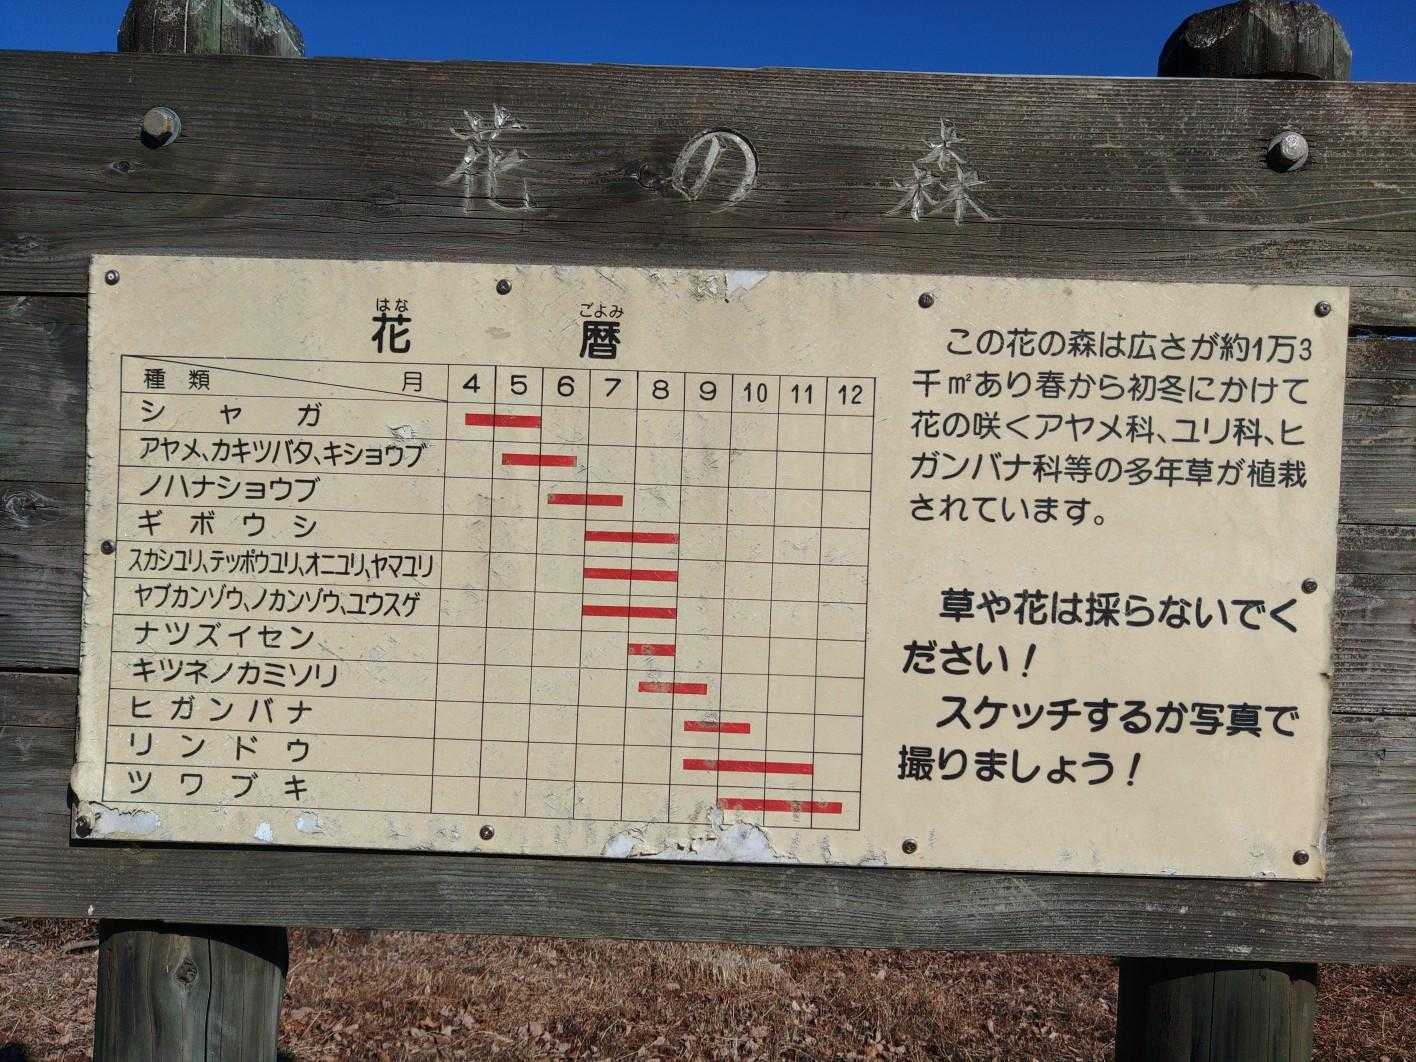 花の森
はな ごよみ
花 暦
種類 月 4 5 6 7 8 9 10 11 12
シャガ
アヤメ、カキツバタ、キショウブ
ノハナショウブ
ギボウシ
スカシユリ、テッポウユリ、オニユリ、ヤマユリ
ヤブカンゾウ、ノカンゾウ、ユウスゲ
ナツズイセン
キツネノカミソリ
ヒガンバナ
リンドウ
ツワブキ
この花の森は広さが約1万3
千㎡あり春から初冬にかけて
花の咲くアヤメ科、ユリ科、ヒ
ガンバナ科等の多年草が植栽
されています。
草や花は採らないでく
ださい！
スケッチするか写真で
撮りましょう！